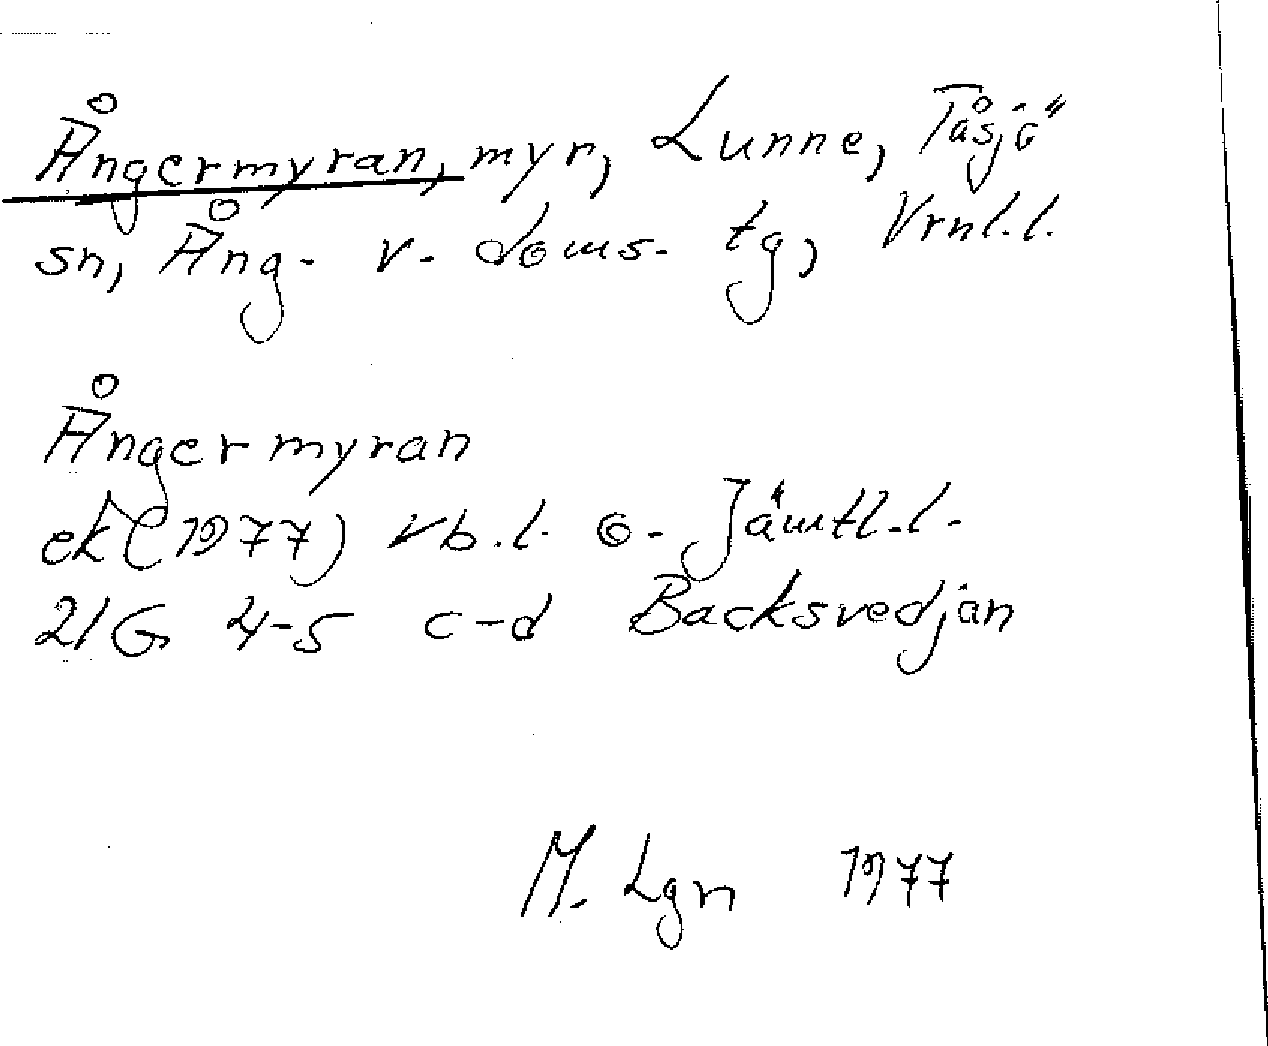 Ångermyran, myr, Lunne, Tåsjö
sn, Ång. v. doms. tg, Vrnl.l.
Ångermyran
ek (1977) vb.l. o. Jämtl.l.
21G 4-5 c-d Backsvedjan
M. Lgn 1977